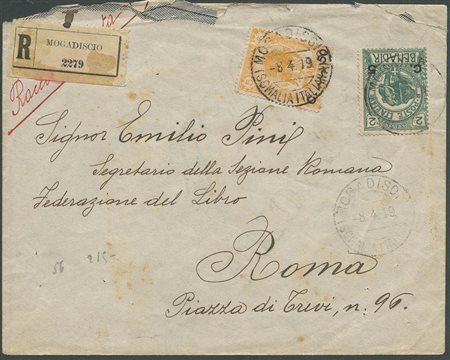 R
MOGADISCIO
2279
MOGADISCIO
8.4.19
(SOMALIA ITALIANA)
BENADIR
C. 5
POSTE ITALIANE
2
Signor Emilio Pini
Segretario della Sezione Romana
Federazione del Libro
MOGADISCIO
8.4.19
56 215-
Roma
Piazza di Trevi, n. 96.